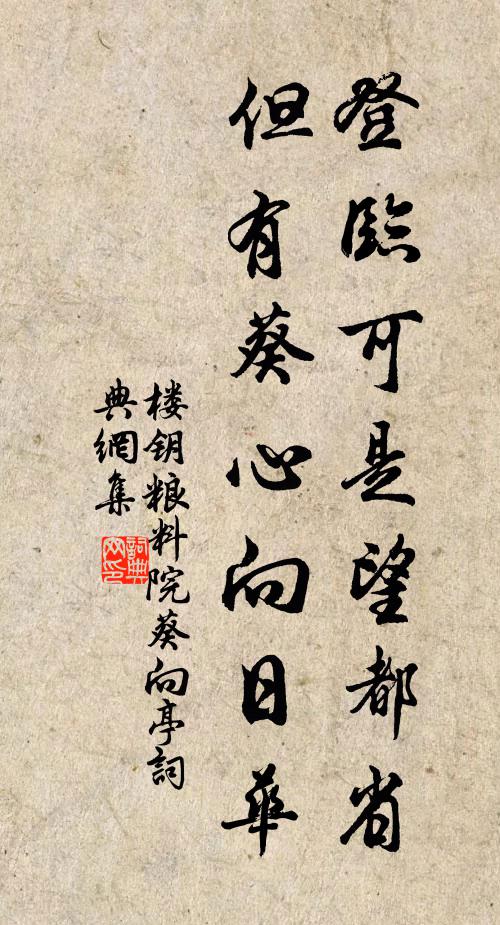 登臨可是望都省
但有葵心向日華
楼钥粮料院葵向亭詞
典網集
詞典
网印